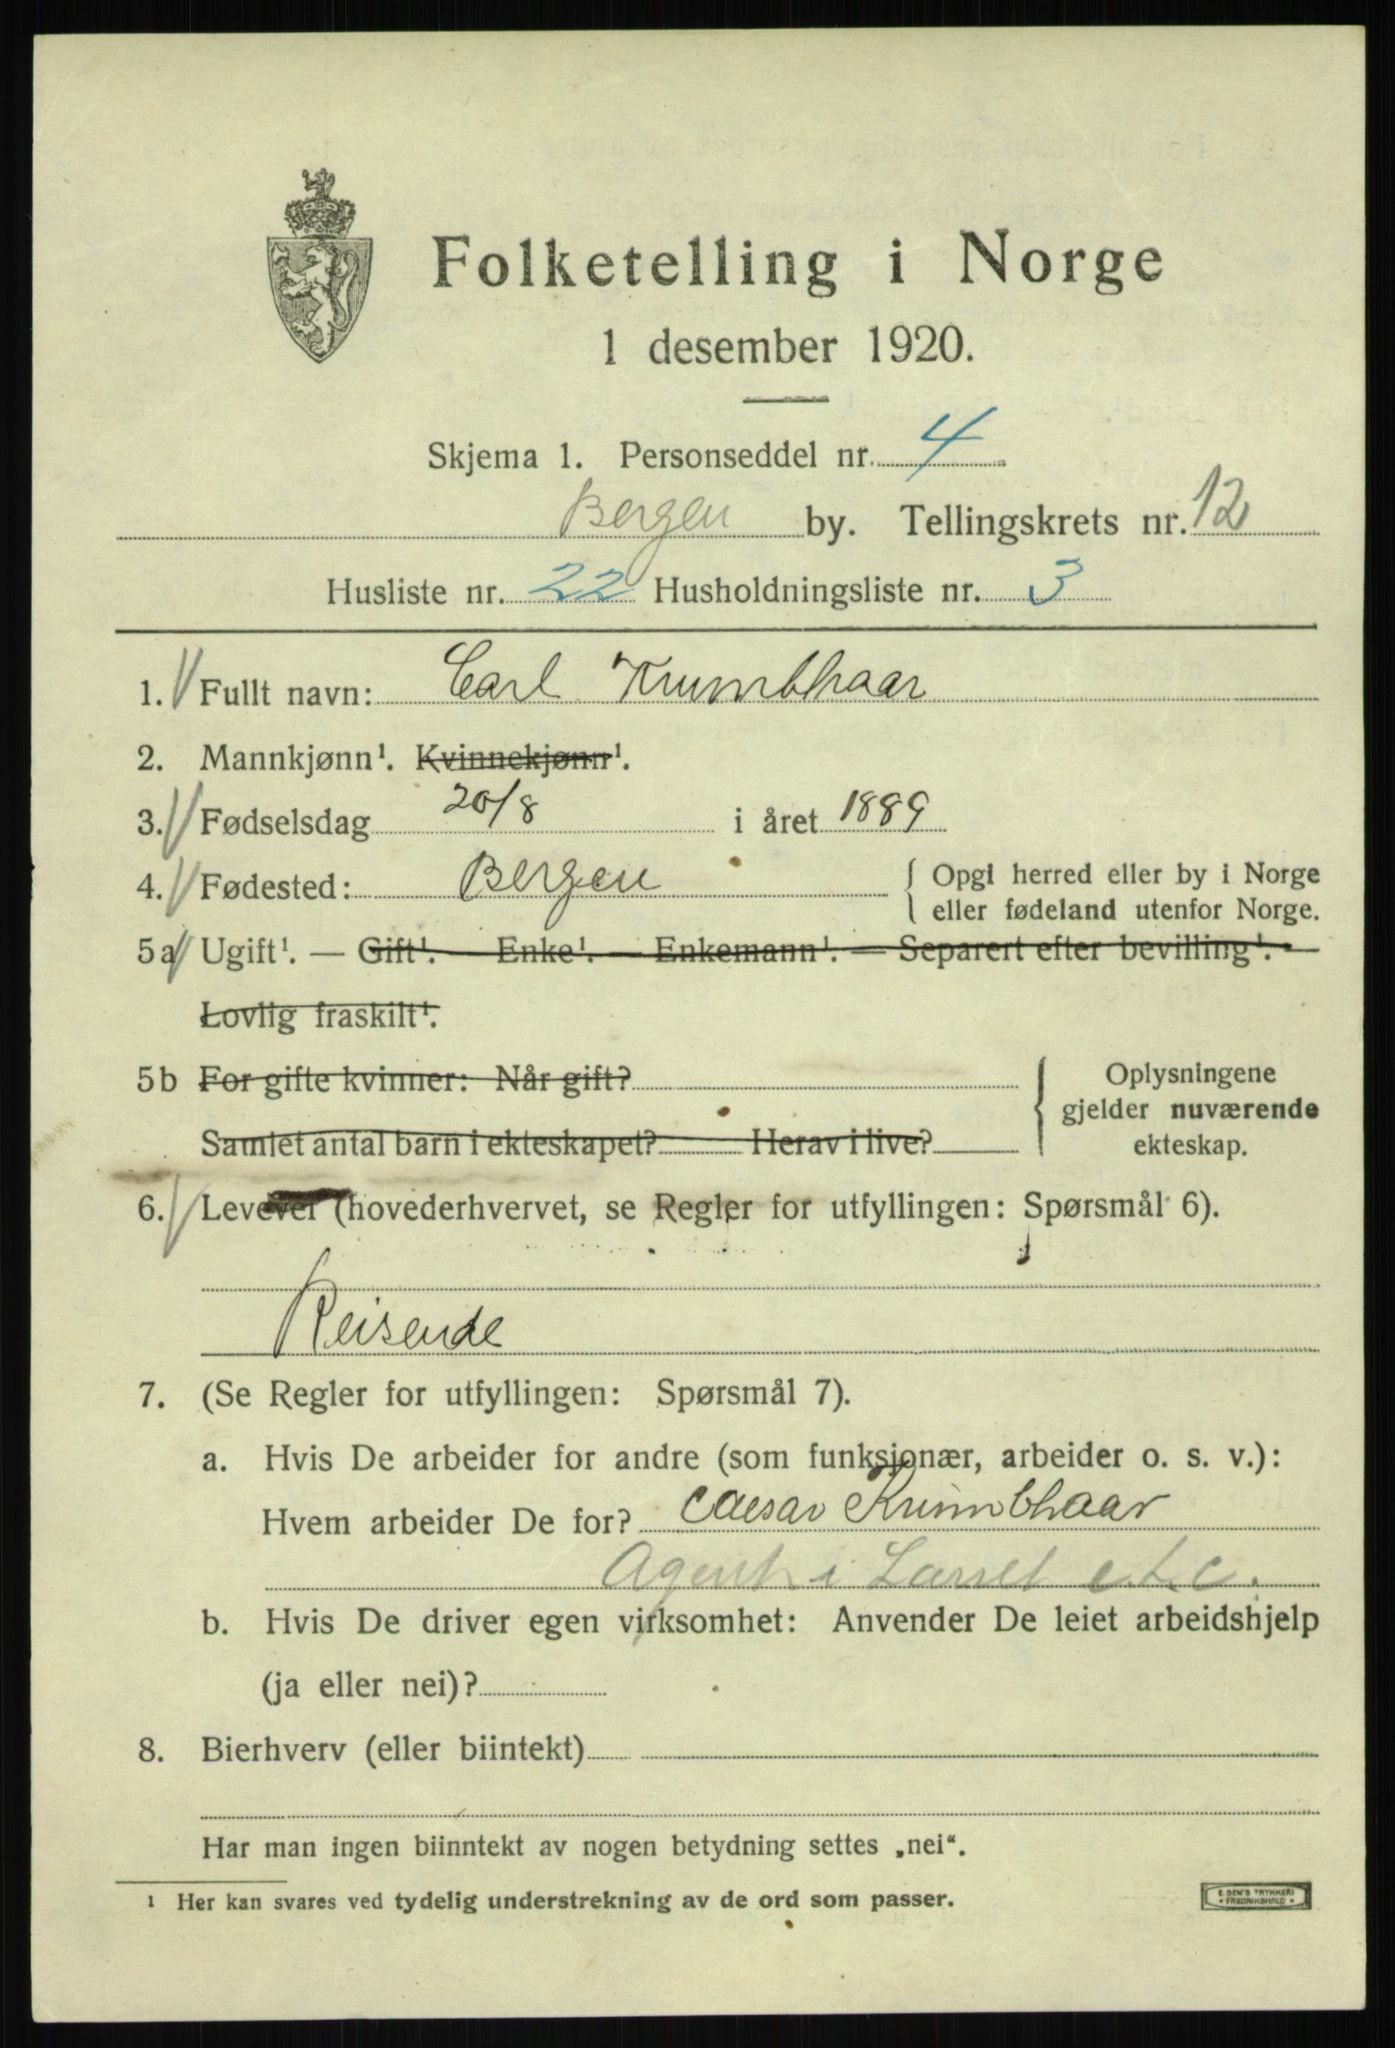 Folketelling i Norge
1 desember 1920.
Skjema 1. Personseddel nr. 4
Bergen by. Tellingskrets nr. 12
Husliste nr. 22 Husholdningsliste nr. 3
1. Fullt navn: Carl Krumbhaar
2. Mannkjønn¹. Kvinnekjønn¹.
3. Fødselsdag 20/8 i året 1889
4. Fødested: Bergen { Opgi herred eller by i Norge
eller fødeland utenfor Norge.
5a Ugift¹. — Gift¹. — Enke¹. — Enkemann¹. — Separert efter bevilling¹. —
Lovlig fraskilt¹.
5b For gifte kvinner: Når gift? { Oplysningene
gjelder nuværende
Samlet antal barn i ekteskapet? Herav i live? ekteskap.
6. Levevei (hovederhvervet, se Regler for utfyllingen: Spørsmål 6).
Reisende
7. (Se Regler for utfyllingen: Spørsmål 7).
a. Hvis De arbeider for andre (som funksjonær, arbeider o. s. v.):
Hvem arbeider De for? Caesar Krumbhaar
Agent i e.t.c.
b. Hvis De driver egen virksomhet: Anvender De leiet arbeidshjelp
(ja eller nei)?
8. Bierhverv (eller biintekt)
Har man ingen biinntekt av nogen betydning settes „nei“.
¹ Her kan svares ved tydelig understrekning av de ord som passer.
E. SEM'S TRYKKERI
• FREDRIKSHALD •